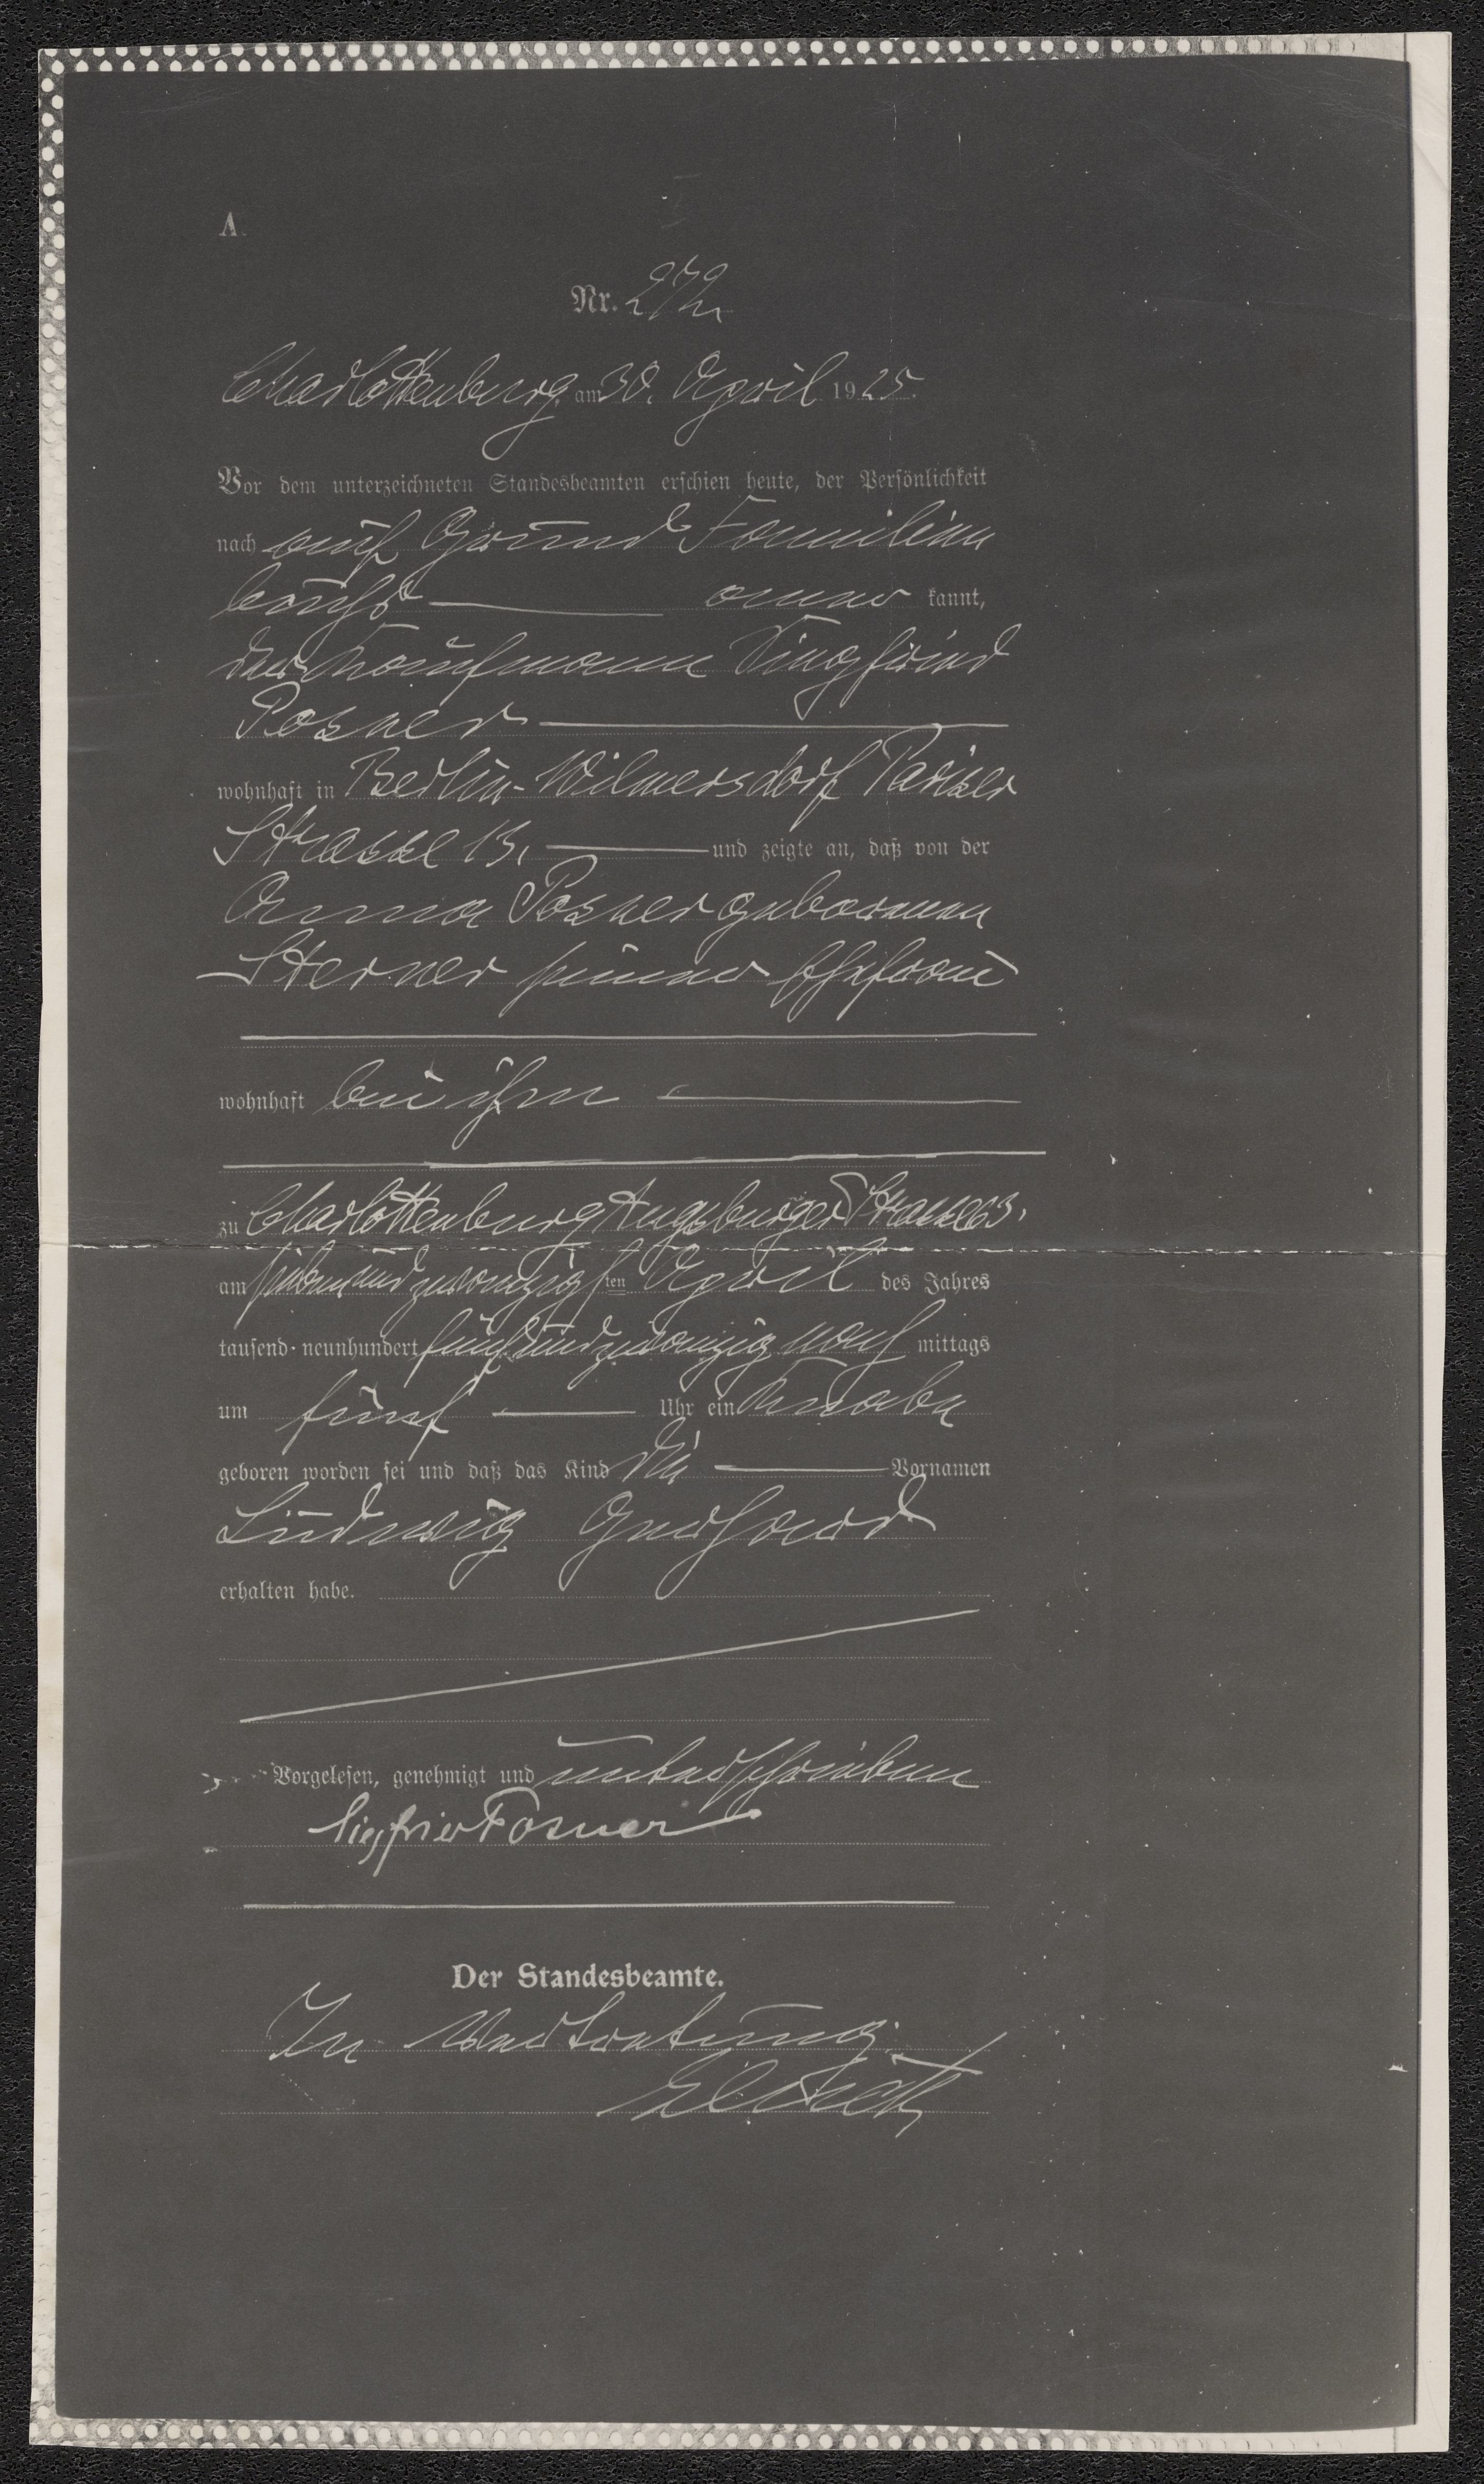 A.
Nr. 272
Charlottenburg, am 30. April 1925.
Vor dem unterzeichneten Standesbeamten erschien heute, der Persönlichkeit
nach auf Grund Familien
buchs aner kannt,
der Kaufmann Siegfried
Posner
wohnhaft in Berlin-Wilmersdorf Pariser
Strasse 13, und zeigte an, daß von der
Anna Posner geborenen
Sterner seiner Ehefrau
wohnhaft bei ihm
zu Charlottenburg Augsburger Strasse 63,
am siebenundzwanzigsten April des Jahres
tausend neunhundert fünfundzwanzig nach mittags
um fünf Uhr ein Knabe
geboren worden sei und daß das Kind die Vornamen
Ludwig Gerhard
erhalten habe.
Vorgelesen, genehmigt und unterschrieben
Siegfried Posner
Der Standesbeamte.
In Vertretung.